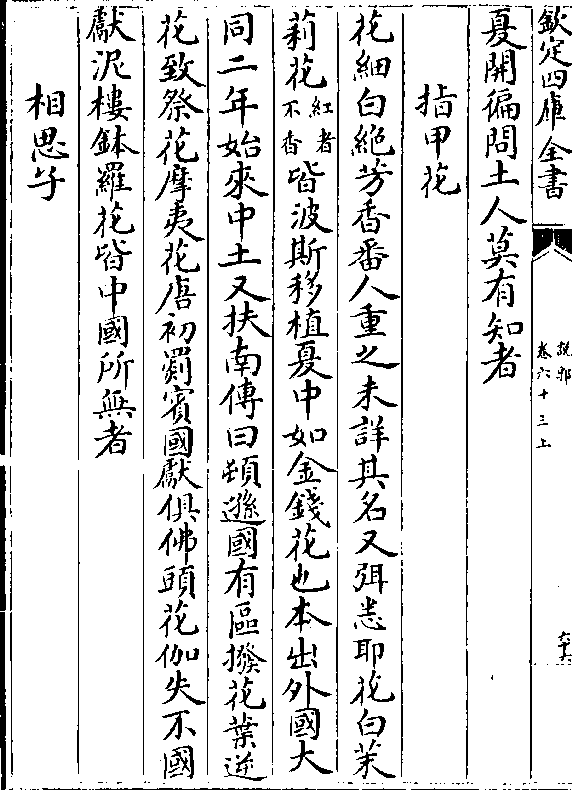 欽定四庫全書
說郛
卷六十三上
六十六
夏開徧問土人莫有知者
指甲花
花細白絶芳香番人重之未詳其名又弭悉耶花白茉
莉花紅者不香皆波斯移植夏中如金錢花也本出外國大
同二年始來中土又扶南傳曰頓遜國有區撥花葉逆
花致祭花摩夷花唐初罽賓國獻俱佛頭花伽失不國
獻泥樓鉢羅花皆中國所無者
相思子